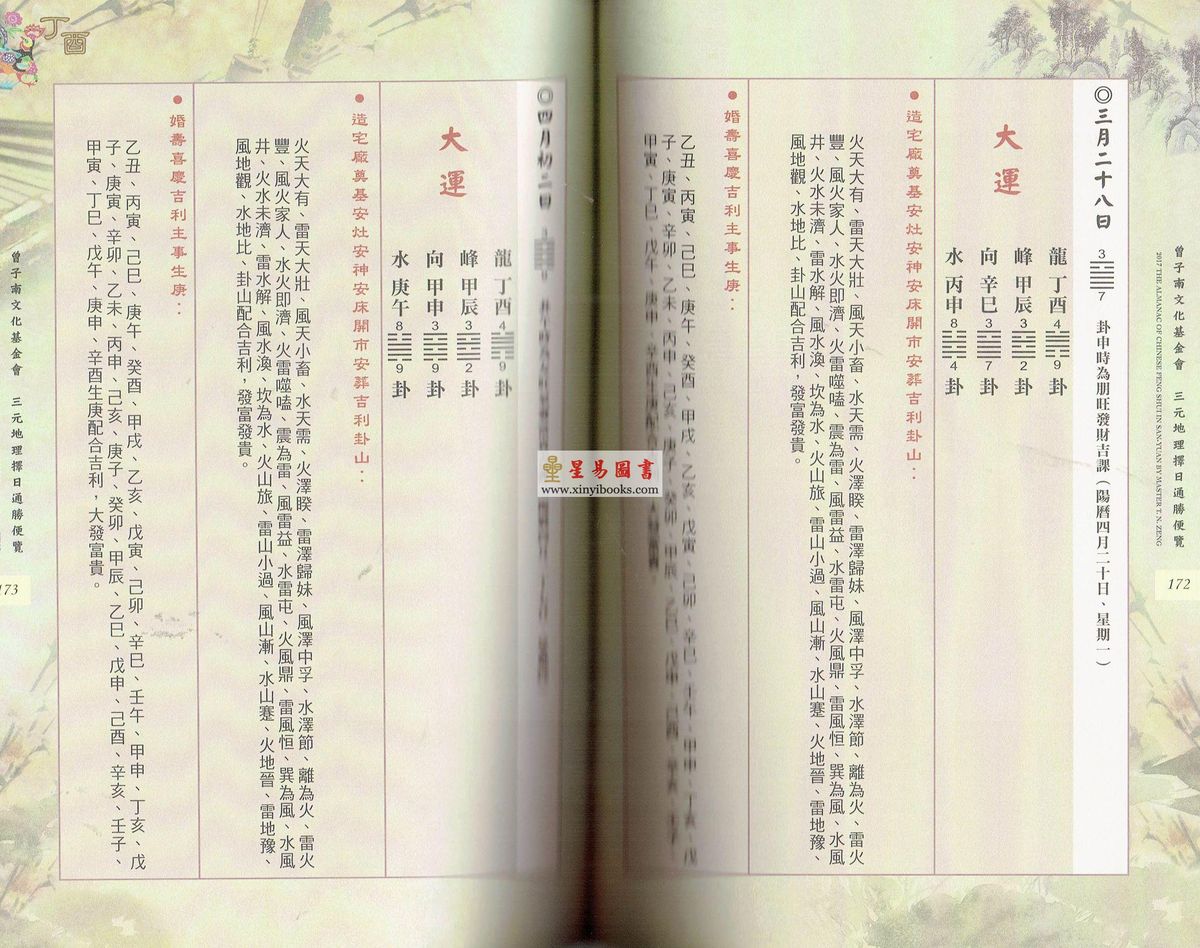 曾子南文化基金會 三元地理擇日通勝便覽
2017 THE ALMANAC OF CHINESE FENG SHUI IN SAN-YUAN BY MASTER T. N. ZENG
172
◎三月二十八日 3 7 卦申時為朋旺發財吉課(陽曆四月二十日、星期一)
大運
龍丁酉 4 9 卦
峰甲辰 3 2 卦
向辛巳 3 7 卦
水丙申 8 4 卦
●造宅廠奠基安灶安神安床開市安葬吉利卦山:
火天大有、雷天大壯、風天小畜、水天需、火澤睽、雷澤歸妹、風澤中孚、水澤節、離為火、雷火
豐、風火家人、水火即濟、火雷噬嗑、震為雷、風雷益、水雷屯、火風鼎、雷風恒、巽為風、水風
井、火水未濟、雷水解、風水渙、坎為水、火山旅、雷山小過、風山漸、水山蹇、火地晉、雷地豫、
風地觀、水地比、卦山配合吉利,發富發貴。
●婚壽喜慶吉利主事生庚:
乙丑、丙寅、己巳、庚午、癸酉、甲戌、乙亥、戊寅、己卯、辛巳、壬午、甲申、丁亥、戊
子、庚寅、辛卯、乙未、丙申、己亥、庚子、癸卯、甲辰、乙巳、戊申、己酉、辛亥、壬子、
甲寅、丁巳、戊午、庚申、辛酉生庚配合吉利
星易圖書
www.xinyibooks.com
◎四月初二日
大運
龍丁酉 4 9 卦
峰甲辰 3 2 卦
向甲申 3 9 卦
水庚午 8 9 卦
●造宅廠奠基安灶安神安床開市安葬吉利卦山:
火天大有、雷天大壯、風天小畜、水天需、火澤睽、雷澤歸妹、風澤中孚、水澤節、離為火、雷火
豐、風火家人、水火即濟、火雷噬嗑、震為雷、風雷益、水雷屯、火風鼎、雷風恒、巽為風、水風
井、火水未濟、雷水解、風水渙、坎為水、火山旅、雷山小過、風山漸、水山蹇、火地晉、雷地豫、
風地觀、水地比、卦山配合吉利,發富發貴。
●婚壽喜慶吉利主事生庚:
乙丑、丙寅、己巳、庚午、癸酉、甲戌、乙亥、戊寅、己卯、辛巳、壬午、甲申、丁亥、戊
子、庚寅、辛卯、乙未、丙申、己亥、庚子、癸卯、甲辰、乙巳、戊申、己酉、辛亥、壬子、
甲寅、丁巳、戊午、庚申、辛酉生庚配合吉利,大發富貴。
丁酉
曾子南文化基金會 三元地理擇日通勝便覽
173